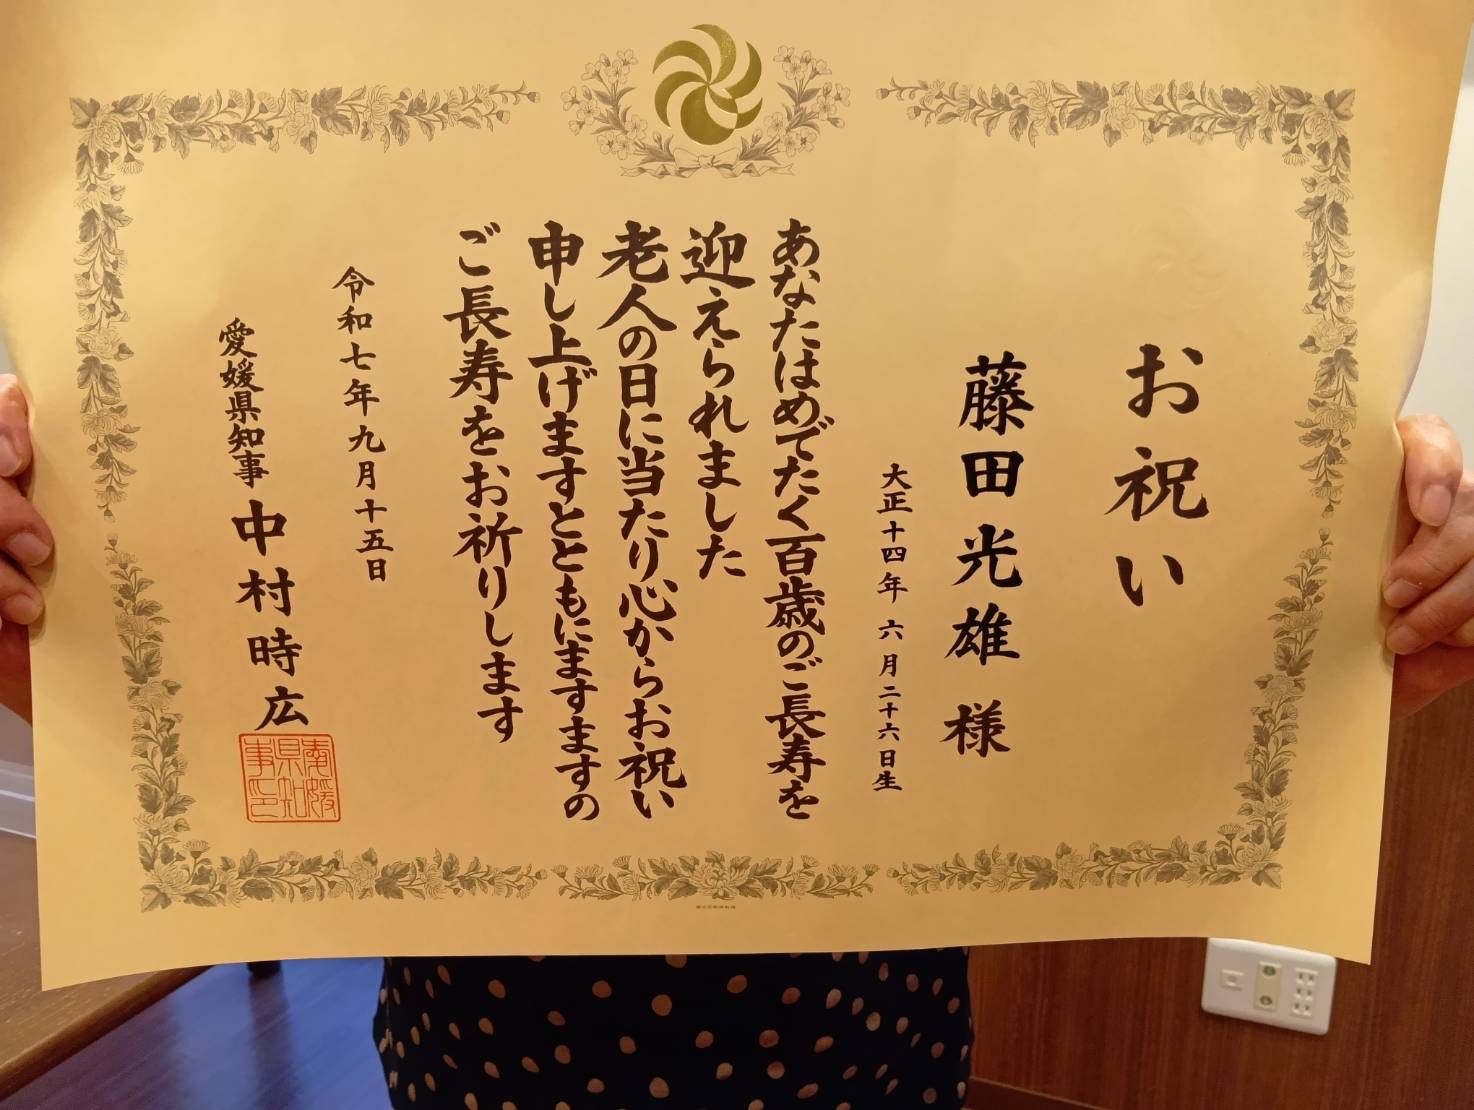 お祝い
藤田光雄様
大正十四年六月二十六日生
あなたはめでたく百歳のご長寿を
迎えられました
老人の日に当たり心からお祝い
申し上げますとともにますますの
ご長寿をお祈りします
令和七年九月十五日
愛媛県知事中村時広
愛媛県知事印